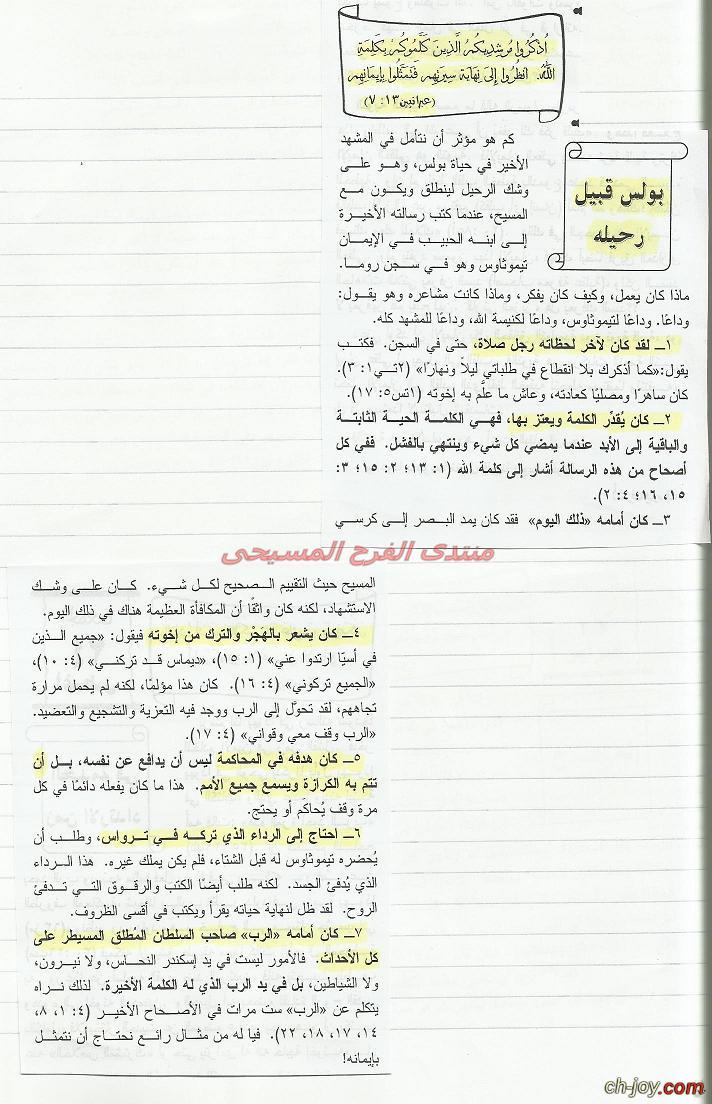 اُذْكُرُوا مُرْشِدِيكُمُ الَّذِينَ كَلَّمُوكُمْ بِكَلِمَةِ
اللهِ. انْظُرُوا إِلَى نِهَايَةِ سِيرَتِهِمْ فَتَمَثَّلُوا بِإِيمَانِهِمْ
(عبرانيين١٣: ٧)
بولس قبيل
رحيله
كم هو مؤثر أن نتأمل في المشهد
الأخير في حياة بولس، وهو على
وشك الرحيل لينطلق ويكون مع
المسيح، عندما كتب رسالته الأخيرة
إلى ابنه الحبيب في الإيمان
تيموثاوس وهو في سجن روما.
ماذا كان يعمل، وكيف كان يفكر، وماذا كانت مشاعره وهو يقول:
وداعًا. وداعًا لتيموثاوس، وداعًا لكنيسة الله، وداعًا للمشهد كله.
١ــ لقد كان لآخر لحظاته رجل صلاة، حتى في السجن. فكتب
يقول:«كما أذكرك بلا انقطاع في طلباتي ليلاً ونهارًا» (٢تي١: ٣).
كان ساهرًا ومصليًا كعادته، وعاش ما علَّم به إخوته (١تس٥: ١٧).
٢ــ كان يُقدِّر الكلمة ويعتز بها، فهي الكلمة الحية الثابتة
والباقية إلى الأبد عندما يمضي كل شيء وينتهي بالفشل. ففي كل
أصحاح من هذه الرسالة أشار إلى كلمة الله (١: ١٣؛ ٢: ١٥؛ ٣:
١٥، ١٦؛ ٤: ٢).
٣ــ كان أمامه «ذلك اليوم» فقد كان يمد البصر إلى كرسي
منتدى الفرح المسيحى
المسيح حيث التقييم الصحيح لكل شيء. كان على وشك
الاستشهاد، لكنه كان واثقًا أن المكافأة العظيمة هناك في ذلك اليوم.
٤ــ كان يشعر بالهَجْر والترك من إخوته فيقول: «جميع الذين
في أسيَّا ارتدوا عني» (١: ١٥)، «ديماس قد تركني» (٤: ١٠)،
«الجميع تركوني» (٤: ١٦). كان هذا مؤلمًا، لكنه لم يحمل مرارة
تجاههم، لقد تحوَّل إلى الرب ووجد فيه التعزية والتشجيع والتعضيد.
«الرب وقف معي وقواني» (٤: ١٧).
٥ــ كان هدفه في المحاكمة ليس أن يدافع عن نفسه، بل أن
تتم به الكرازة ويسمع جميع الأمم. هذا ما كان يفعله دائمًا في كل
مرة وقف يُحاكَم أو يحتج.
٦ــ احتاج إلى الرداء الذي تركه في ترواس، وطلب أن
يُحضره تيموثاوس له قبل الشتاء، فلم يكن يملك غيره. هذا الرداء
الذي يُدفئ الجسد. لكنه طلب أيضًا الكتب والرقوق التي تدفئ
الروح. لقد ظل لنهاية حياته يقرأ ويكتب في أقسى الظروف.
٧ــ كان أمامه «الرب» صاحب السلطان المُطلق المسيطر على
كل الأحداث. فالأمور ليست في يد إسكندر النحاس، ولا نيرون،
ولا الشياطين، بل في يد الرب الذي له الكلمة الأخيرة. لذلك نراه
يتكلم عن «الرب» ست مرات في الأصحاح الأخير (٤: ١، ٨،
١٤، ١٧، ١٨، ٢٢). فيا له من مثال رائع نحتاج أن نتمثل
بإيمانه!
ch-joy.com